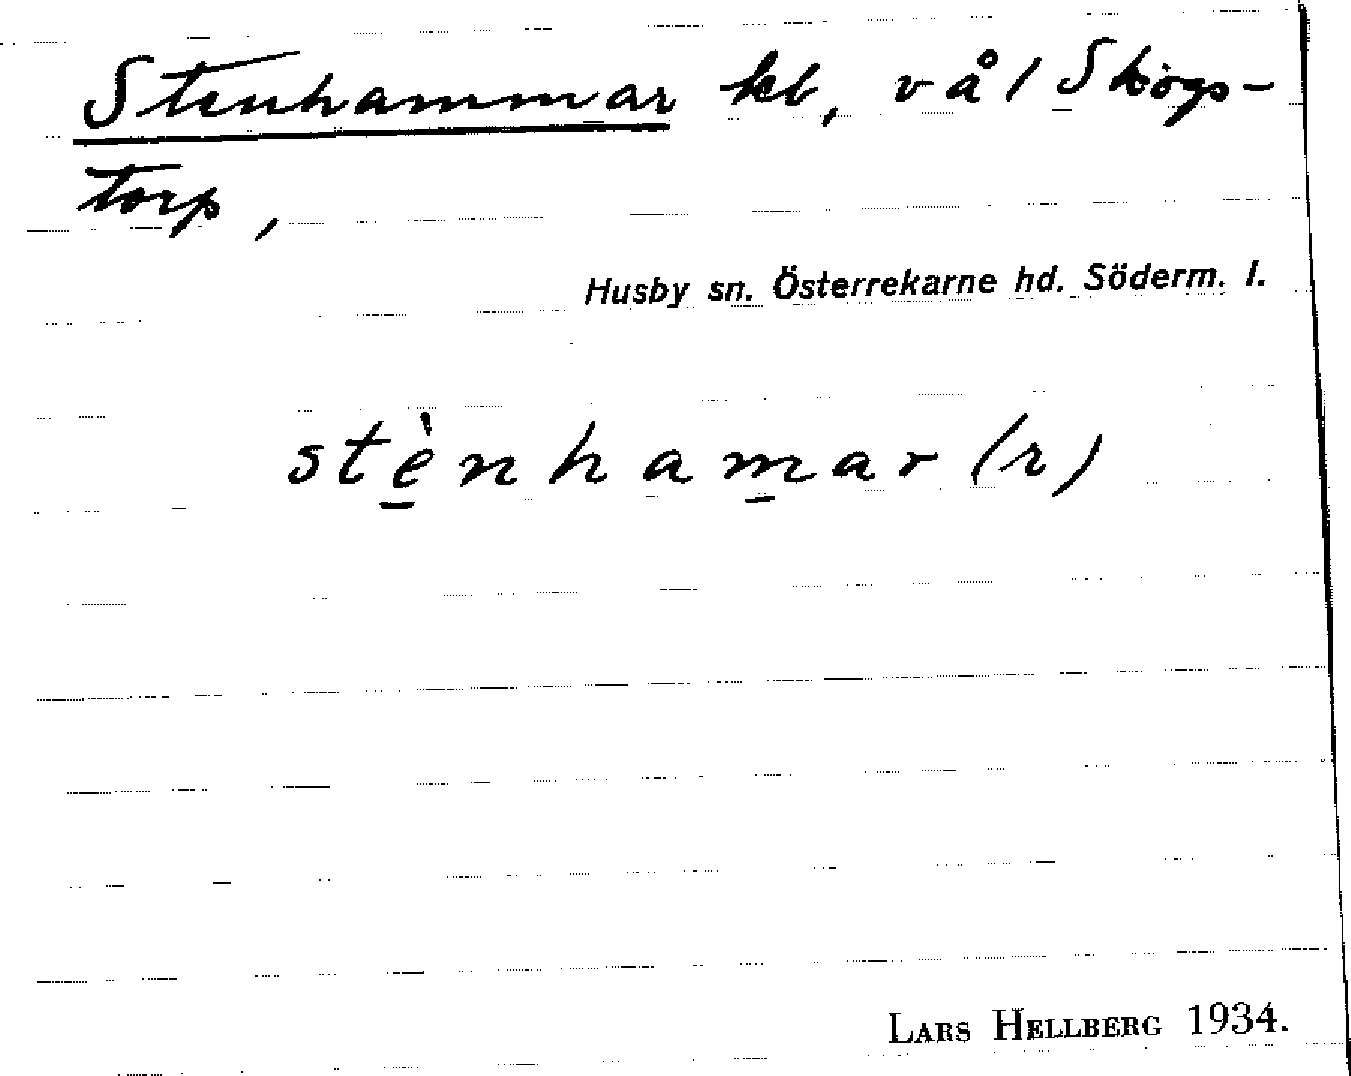 Stenhammar kb, vål Skogs-
torp,
Husby sn. Österrekarne hd. Söderm. l.
stènhamar(r)
LARS HELLBERG 1934.